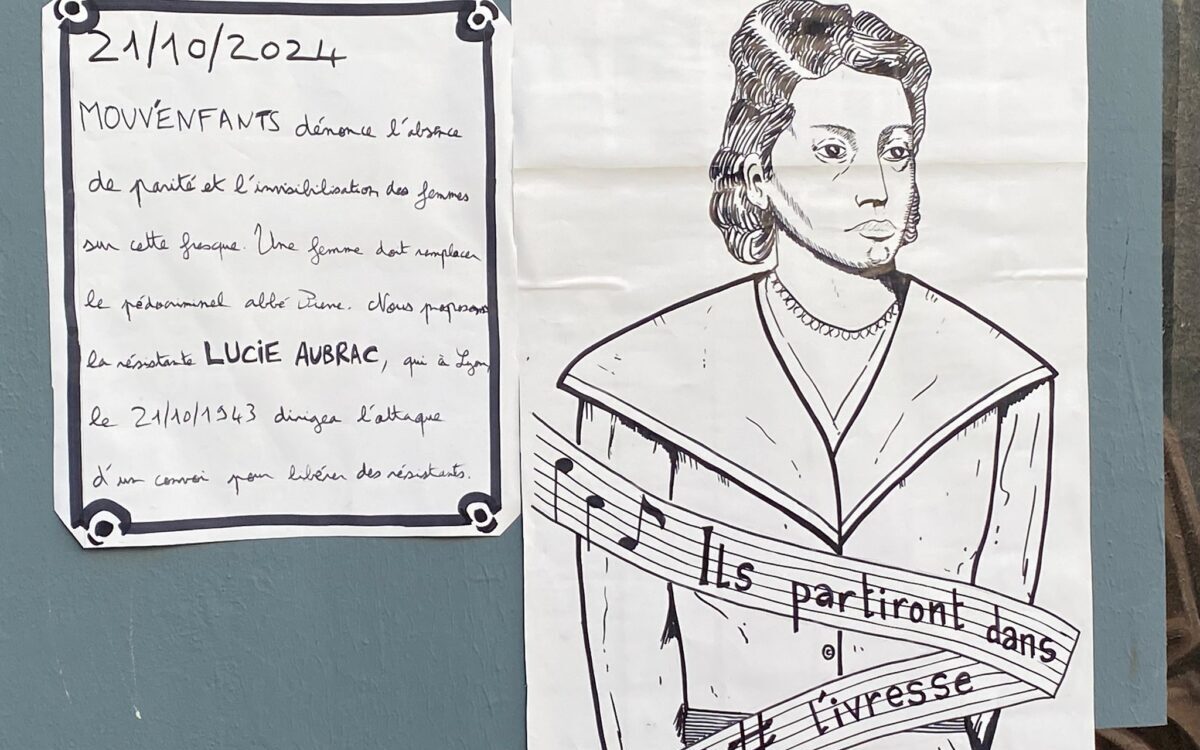 21/10/2024
MOUV'ENFANTS dénonce l'absence
de parité et l'invisibilisation des femmes
sur cette fresque. Une femme doit remplacer
le pédocriminel abbé Pierre. Nous proposons
la résistante LUCIE AUBRAC, qui à Lyon
le 21/10/1943 dirigea l'attaque
d'un convoi pour libérer des résistants.
Ils partiront dans
l'ivresse
©